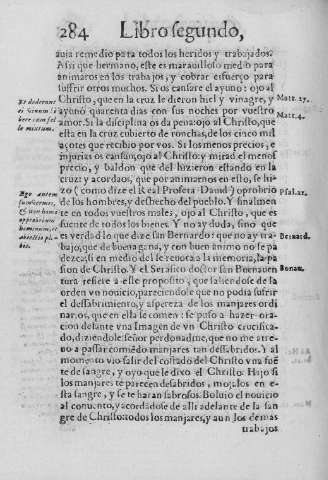 284 Libro segundo,
auia remedio para todos los heridos y trabajados.
Assi que hermano, este es marauilloso medio para
animaros en los trabajos, y cobrar esfuerço para
sufrir otros muchos. Si os cansare el ayuno: ojo al
Christo, que en la cruz le dieron hiel y vinagre, y
ayuno quarenta dias con sus noches por vuestro
amor. Si la disciplina os da pena ojo al Christo, que
esta en la cruz cubierto de ronchas, de los cinco mil
açotes que recibio por vos. Si los menos precios, e
injurias os cansan, ojo al Christo: y mirad el menos
precio, y baldon que del hizieron estando en la
cruz: y acordaos, que por animarnos en esto, se hi-
zo (como dize el Real Profeta Dauid) oprobrio
de los hombres, y deshecho del pueblo. Y finalmen
te en todos vuestros males, ojo al Christo, que es
fuente de todos los bienes. Y no ay duda, sino que
es verdad lo que dize san Bernardo: que no ay tra-
bajo, que de buena gana, y con buen animo no se pa
dezca, si en medio del se reuoca a la memoria, la pa
sion de Christo. Y el Serafico doctor san Bornauen
tura refiere a este proposito, que saliendose de la
orden vn nouicio, pareciendole que no podria sufrir
el dessabrimiento, y aspereza de los manjares ordi
narios, que en ella se comen: se puso a hazer ora-
cion delante vna Imagen de vn Christo crucifica-
do, diziendole: señor perdonadme, que no me atre-
uo a passar comiẽdo manjares tan dessabridos. Y al
momento vio salir del costado del Christo vna fuẽ
te de sangre, y oyo que le dixo el Christo. Hijo si
los manjares te parecen desabridos, mojalos en e-
sta sangre, y se te haran sabrosos. Boluio el nouicio
al conuento, y acordãdose de alli adelante de la san
gre de Christo: todos los manjares, y aun los demas
trabajos
Et dederunt
ei vinum bi
bere cum fel
le mixtum.
Ego autem
sum vermis,
& non homo
opprobrium
hominum, et
abiectio ple-
bis.
Matt. 27.
Matt. 4.
Psal. 21.
Bernard.
Bonau.